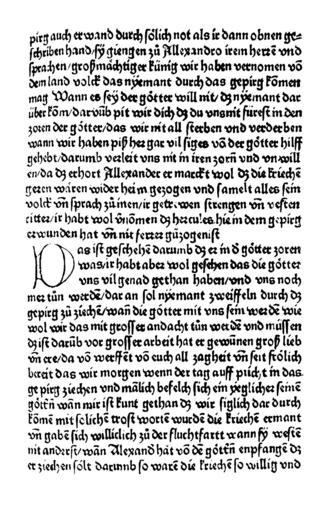 pirg auch er wand durch sölich not als ir dann obnen ge⸗
schriben hand/sy giengen zů Allexandro irem herrē vnd
sprachen/großmächtiger künig wir haben vernomen vō
dem land volck das nyemant durch das gepirg kōmen
mag Wann es sey der götter will nit/dz nyemant dar
über kōm/darūb pit wir dich dz du vns nit fürest in den
zoren der götter/das wir nit all sterben vnd verderben
wann wir haben piß her gar vil siges vō der götter hilff
gehebt/darumb verleit vns nit in iren zorn vnd vnwill
en/da dz erhort Allexander er marckt wol dz die kriechē
geren wären wider heim gezogen vnd samelt alles sein
volck vn̄ sprach zů inen/ir getrewen strengen vn̄ vesten
ritter/ir habt wol vnōmen dz hercules hie in dem gepirg
erwunden hat vn̄ nit ferrer gůzogen ist
Das ist geschehē darumb dz er in d götter zoren
was/ir habt aber wol gesehen das die götter
vns vil genad gethan haben/vnd vns noch
mer tůn werdē/dar an sol nyemant zweiffeln durch dz
gepirg zů ziechē/wan̄ die götter mit vns sein werdē wie
wol wir das mit grosser andacht tůn werdē vnd müssen
dz ist darūb vor grosser arbeit hat er gewünen groß lieb
vn̄ ere/da vō werffēt vō euch all zagheit vn̄ seit frölich
bereit das wir morgen wenn der tag auff pricht in das
ge pirg ziechen vnd mälich befelch sich ein yeglicher seinē
göttn̄ wan̄ mir ist kunt gethan dz wir siglich dar durch
kōmē mit solichē trost wortē wurdē die kriechē ermant
vn̄ gabē sich williclich zů der fluchtfartt wann sy westē
nit anderst/wan̄ Alexand hat vō dē göttn̄ enpfangē dz
er ziechen sölt darumb so warē die kriechē so willig vnd